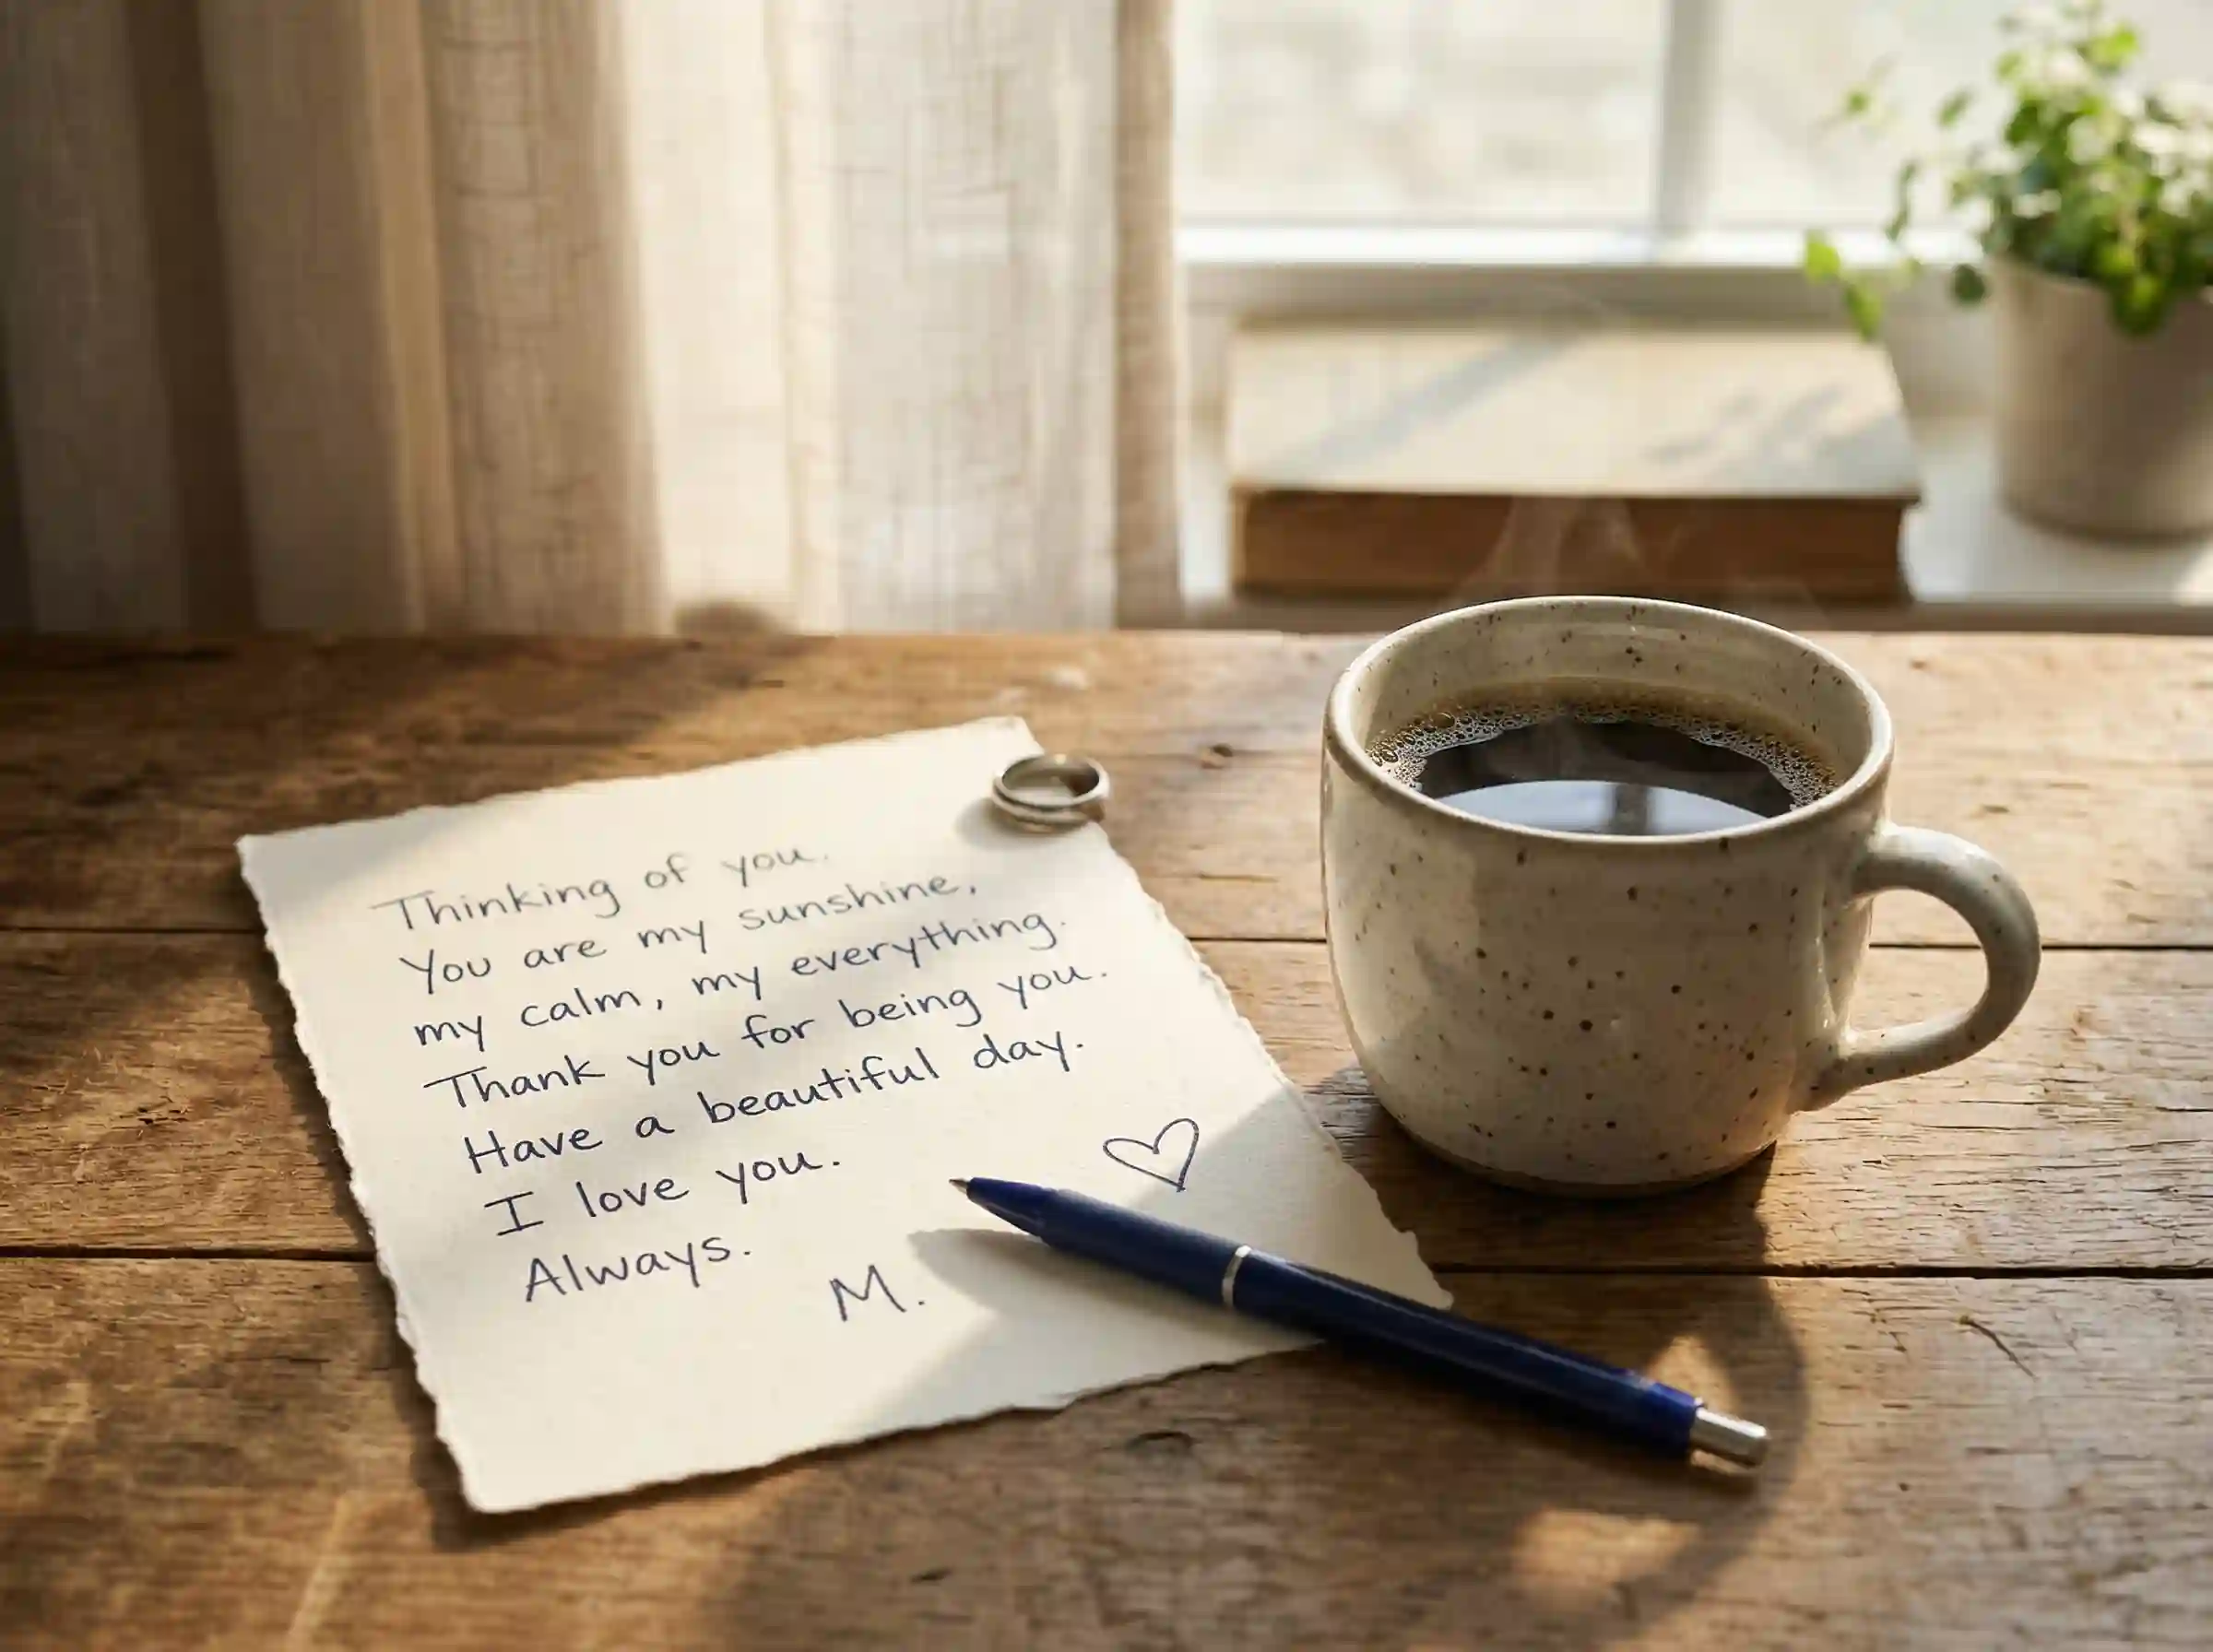 Thinking of you.
You are my sunshine,
my calm, my everything.
Thank you for being you.
Have a beautiful day.
I love you.
Always.
M.